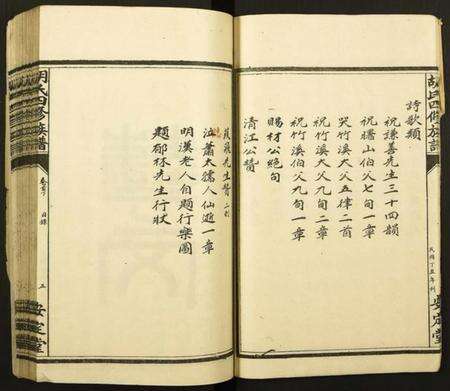 胡氏四修族譜
民國丁丑年刊
安定堂
詩歌類
祝謙善先生三十四韻
祝曙山伯父七旬一章
哭竹溪大人五律二首
祝竹溪大父九旬二章
祝竹溪伯父九旬一章
賜材公絕句
清江公贊
先生贊二則
泣蕭太孺人仙逝一章
明漢老人自題行樂圖
題郁林先生行狀
胡氏四修族譜
卷首
目錄
三
安定堂